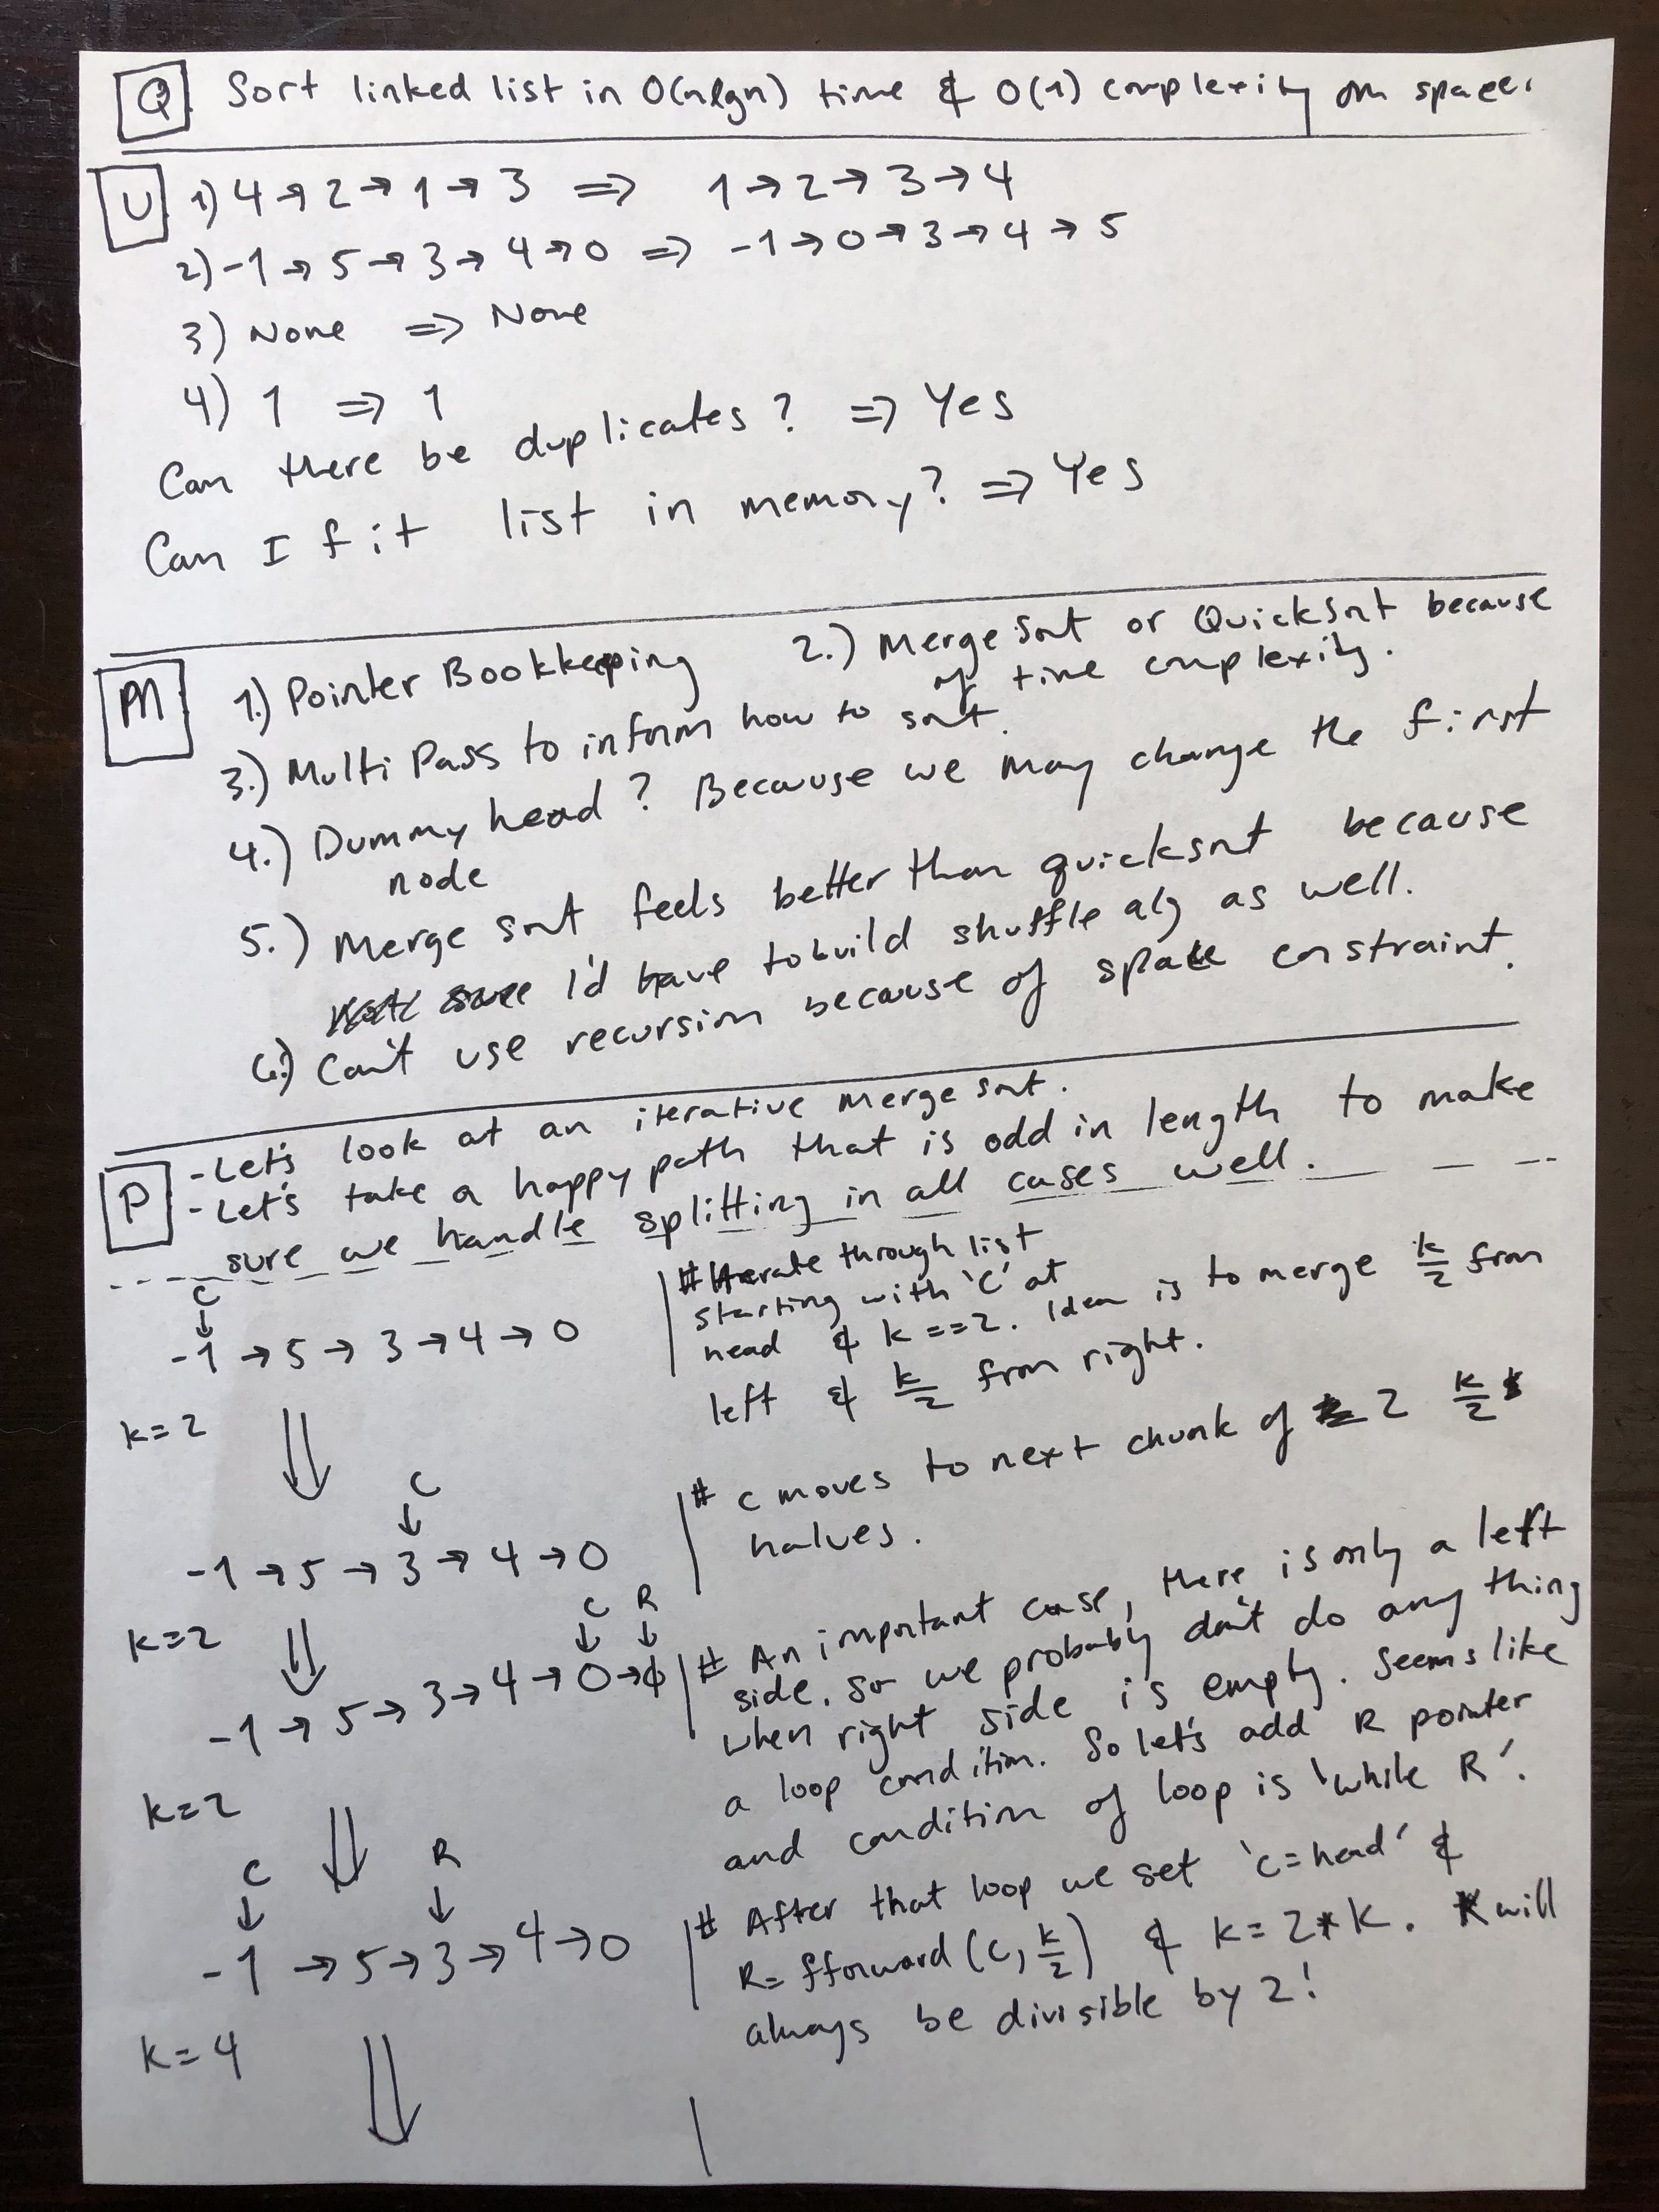 Q Sort linked list in O(nlgn) time & O(1) complexity on space.
U 1) 4 → 2 → 1 → 3 ⇒ 1 → 2 → 3 → 4
2) -1 → 5 → 3 → 4 → 0 ⇒ -1 → 0 → 3 → 4 → 5
3) None ⇒ None
4) 1 ⇒ 1
Can there be duplicates? ⇒ Yes
Can I fit list in memory? ⇒ Yes
M 1.) Pointer Bookkeeping
2.) Merge Sort or QuickSort because
of time complexity.
3.) Multi Pass to inform how to sort.
4.) Dummy head? Because we may change the first
node
5.) Merge sort feels better than quicksort because
I'd have to build shuffle alg as well.
6.) Can't use recursion because of space constraint.
P - Let's look at an iterative merge sort.
- Let's take a happy path that is odd in length to make
sure we handle splitting in all cases well.
C
↓
-1 → 5 → 3 → 4 → 0
k=2
# Iterate through list
starting with 'C' at
head & k==2. Idea is to merge k/2 from
left & k/2 from right.
C
↓
-1 → 5 → 3 → 4 → 0
k=2
# C moves to next chunk of 2 k/2
halves.
C R
↓ ↓
-1 → 5 → 3 → 4 → 0 → ϕ
k=2
# An important case, there is only a left
side. So we probably don't do any thing
when right side is empty. Seems like
a loop condition. So let's add R pointer
and condition of loop is 'while R'.
C R
↓ ↓
-1 → 5 → 3 → 4 → 0
k=4
# After that loop we set 'C=head' &
R= fforward(C, k/2) & k=2*k. K will
always be divisible by 2!